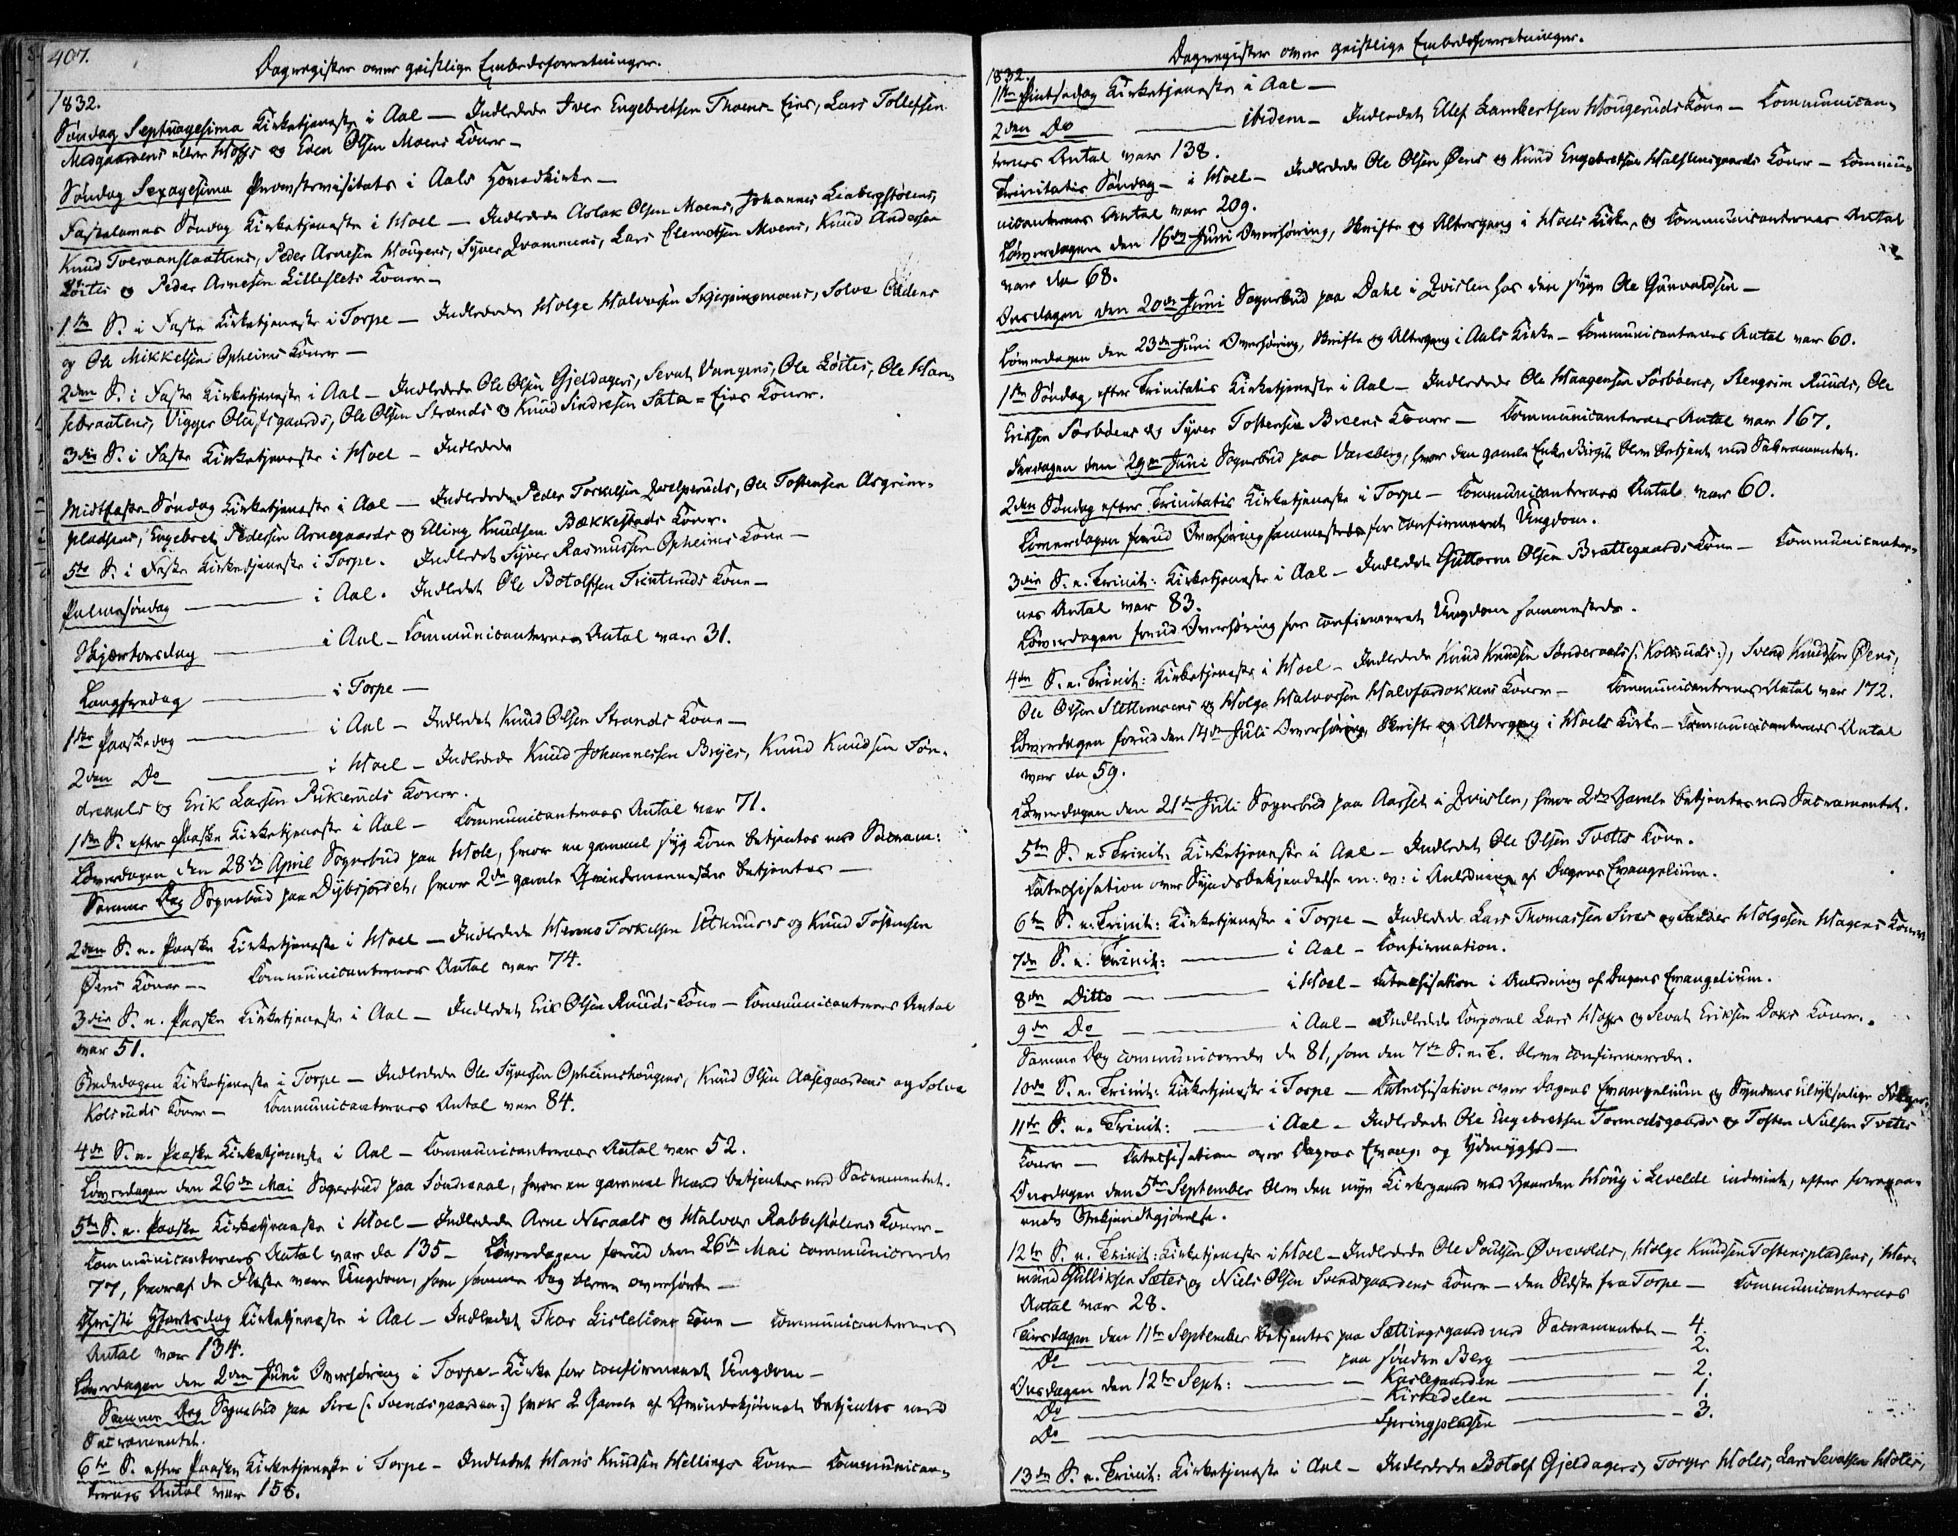 407.
Dagregister over geistlige Embedsforretninger.
1832.
Søndag Septuagesima Kirketjeneste i Aal — Indledede Iver Engebretsen Thoens Eies, Lars Tollefsen
Medgaardens eller Hoffs og Even Olsen Moens Koner —
Søndag Sexagesima Provstevisitats i Aals Hovedkirke —
Fastelavns Søndag Kirketjeneste i Hoel — Indledede Aslak Olsen Moens, Johannes
Knud Tveraaslaattens, Peder Arnesen Hougens, Syver Qvammens, Lars Clemetsen Moens, Knud Andersen
Løites og Peder Arnesen Lilleslets Koner —
1ste S. i Faste Kirketjeneste i Torpe — Indledede Holge Halvorsen Skjerpingmoens, Solve
og Ole Mikkelsen Opheims Koner —
2den S. i Faste Kirketjeneste i Aal — Indledede Ole Olsen Gjeldagers, Sevat Vangens, Ole Løites, Ole
Vigger Olufsgaards, Ole Olsen Strands og Knud Sindresen Sata-Eies Koner.
3die S. i Faste Kirketjeneste i Hoel — Indledede
Midtfaste Søndag Kirketjeneste i Aal — Indledede Peder Torkelsen Qvelpruds, Ole Tostensen Asgrims-
pladsens, Engebret Pedersen Arnegaards og Elling Knudsen Bækkestads Koner.
5te S. i Faste Kirketjeneste i Torpe. Indledet Syver Rasmussen Opheims Kone —
Palmesøndag ——— i Aal. Indledet Ole Botolfsen Trintruds Kone —
Skjærtorsdag ——— i Aal — Communicanternes Antal var 31.
Langfredag ——— i Torpe —
1ste Paaskedag ——— i Aal — Indledet Knud Olsen Strands Kone —
2den Do ——— i Hoel — Indledede Knud Johannessen Byes, Knud Knudsen Søn-
dreaals og Erik Larsen Pukeruds Koner.
1ste S. efter Paaske Kirketjeneste i Aal — Communicanternes Antal var 71.
Løverdagen den 28de April Sognebud paa Hole, hvor en gammel syg Kone betjentes med Sacram:
Samme Dag Sognebud paa hvor 2de gamle Qvindemennesker betjentes —
2den S. e. Paaske Kirketjeneste i Hoel — Indledede Torkelsen og Knud Tostensen
Øens Koner — Communicanternes Antal var 74.
3die S. e. Paaske Kirketjeneste i Aal — Indledet Erik Olsen Ruuds Kone — Communicanternes Antal
var 51.
Bededagen Kirketjeneste i Torpe — Indledede Ole Syversen Opheimshougens, Knud Olsen Aasegaardens og Solve
Kolsruds Koner — Communicanternes Antal var 84.
4de S. e. Paaske Kirketjeneste i Aal — Communicanternes Antal var 52.
Løverdagen den 26de Mai Sognebud paa Søndreaal, hvor en gammel Mand betjentes med Sacramentet.
5te S. e. Paaske Kirketjeneste i Hoel — Indledede Arne Neraals og Halvor Rabbestølens Koner —
Communicanternes Antal var da 135 — Løverdagen forud den 26de Mai communicerede
77, hvoraf de Fleste vare Ungdom, som samme Dag bleve overhørte —
Christi Himmelfartsdag Kirketjeneste i Aal — Indledet Thor Lislelions Kone — Communicanternes
Antal var 134.
Løverdagen den 2den Juni Overhøring i Torpe-Kirke for confirmeret Ungdom —
Samme Dag Sognebud paa Sire (: Svendsgaarden :) hvor 2 Gamle af Qvindekjønnet betjentes med
Sacramentet.
6te S. efter Paaske Kirketjeneste i Torpe — Indledet Hans Knudsen Hellings Kone — Communican-
ternes Antal var 158.
Dagregister over geistlige Embedsforretninger.
1832.
1ste Pintsedag Kirketjeneste i Aal —
2den Do ——— ibidem — Indledet Ellef Lambertsen Hougeruds Kone — Communican-
ternes Antal var 138.
Trinitatis Søndag — i Hoel — Indledede Ole Olsen Øens og Knud Engebretsen Halstensgaards Koner — Commu-
nicanternes Antal var 209.
Løverdagen den 16de Juni Overhøring, Skrifte og Altergang i Hoels Kirke, og Communicanternes Antal
var da 68.
Onsdagen den 20de Juni Sognebud paa Dahl i Qvislen hos den syge Ole Gunvaldsen —
Løverdagen den 23de Juni Overhøring, Skrifte og Altergang i Aals Kirke — Communicanternes Antal var 60.
1ste Søndag efter Trinitatis Kirketjeneste i Aal — Indledede Ole Haagensen Sørbøens, Stengrim Ruuds, Ole
Eriksen Sørbøens og Syver Tostensen Breens Koner — Communicanternes Antal var 167.
Fredagen den 29de Juni Sognebud paa Vareberg, hvor den gamle Enke Birgit blev betjent med Sacramentet.
2den Søndag efter Trinitatis Kirketjeneste i Torpe — Communicanternes Antal var 60.
Løverdagen forud Overhøring sammesteds for confirmeret Ungdom.
3die S. e. Trinit: Kirketjeneste i Aal — Indledet Guttorm Olsen Brattegaards Kone — Communicanter-
nes Antal var 83.
Løverdagen forud Overhøring for confirmeret Ungdom sammesteds.
4de S. e. Trinit: Kirketjeneste i Hoel — Indledede Knud Knudsen Sønderaals (: Kolsruds :), Svend Knudsen Øens,
Ole Olsen Slettemoens og Holge Halvorsen Halvfardokkens Koner — Communicanternes Antal var 172.
Løverdagen forud den 14de Juli Overhøring, Skrifte og Altergang i Hoels Kirke — Communicanternes Antal
var da 59.
Løverdagen den 21de Juli Sognebud paa Aarset i Qvislen, hvor 2de Gamle betjentes med Sacramentet.
5te S. e. Trinit: Kirketjeneste i Aal — Indledet Ole Olsen Tvetes Kone.
Catechisation over Syndsbekjendelse m: v: i Anledning af Dagens Evangelium.
6te S. e. Trinit: Kirketjeneste i Torpe — Indledede Lars Thomassen Sires og Sander Holgesen Hagens Koner
7de S. e. Trinit: ——— i Aal — Confirmation.
8de Ditto ——— i Hoel — Catechisation i Anledning af Dagens Evangelium.
9de Do ——— i Aal — Indledede Corporal Lars Hoffs og Sevat Eriksen Dokks Koner.
Samme Dag communicerede de 81, som den 7de S. e. T. bleve confirmerede.
10de S. e. Trinit: Kirketjeneste i Torpe — Catechisation over Dagens Evangelium og Syndens ulyksalige Følger.
11te S. e. Trinit: ——— i Aal — Indledede Ole Engebretsen Tormodsgaards og Tosten Nielsen Tvetes
Koner — Catechisation over Dagens Evang: og Ydmyghed —
Onsdagen den 5te September blev den nye Kirkegaard ved Gaarden Houg i Levelde indviet, efter foregaa-
ende Bekjendtgjørelse.
12te S. e. Trinit: Kirketjeneste i Hoel — Indledede Ole Poulsen Øvrevolds, Holge Knudsen Tostenspladsens, Her-
mund Gulliksen Sæter og Niels Olsen Svendsgaardens Koner — den Sidste fra Torpe — Communicanternes
Antal var 28.
Tirsdagen den 11te September betjentes paa Sættingsgaard med Sacramentet — 4.
Do ——— paa Søndre Berg ——— 2.
Onsdagen den 12te Sept: ——— Karlegaarden ——— 2.
Do ——— Kirkedelen ——— 1.
Do ——— Springpladsen ——— 3.
13de S. e. Trinit: Kirketjeneste i Aal — Indledede Botolf Gjeldagers, Torger Holes, Lars Sevatsen Holes,